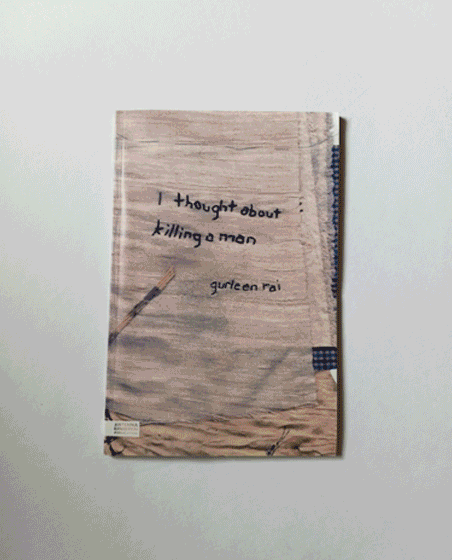 I thought about
killing a man
gurleen rai